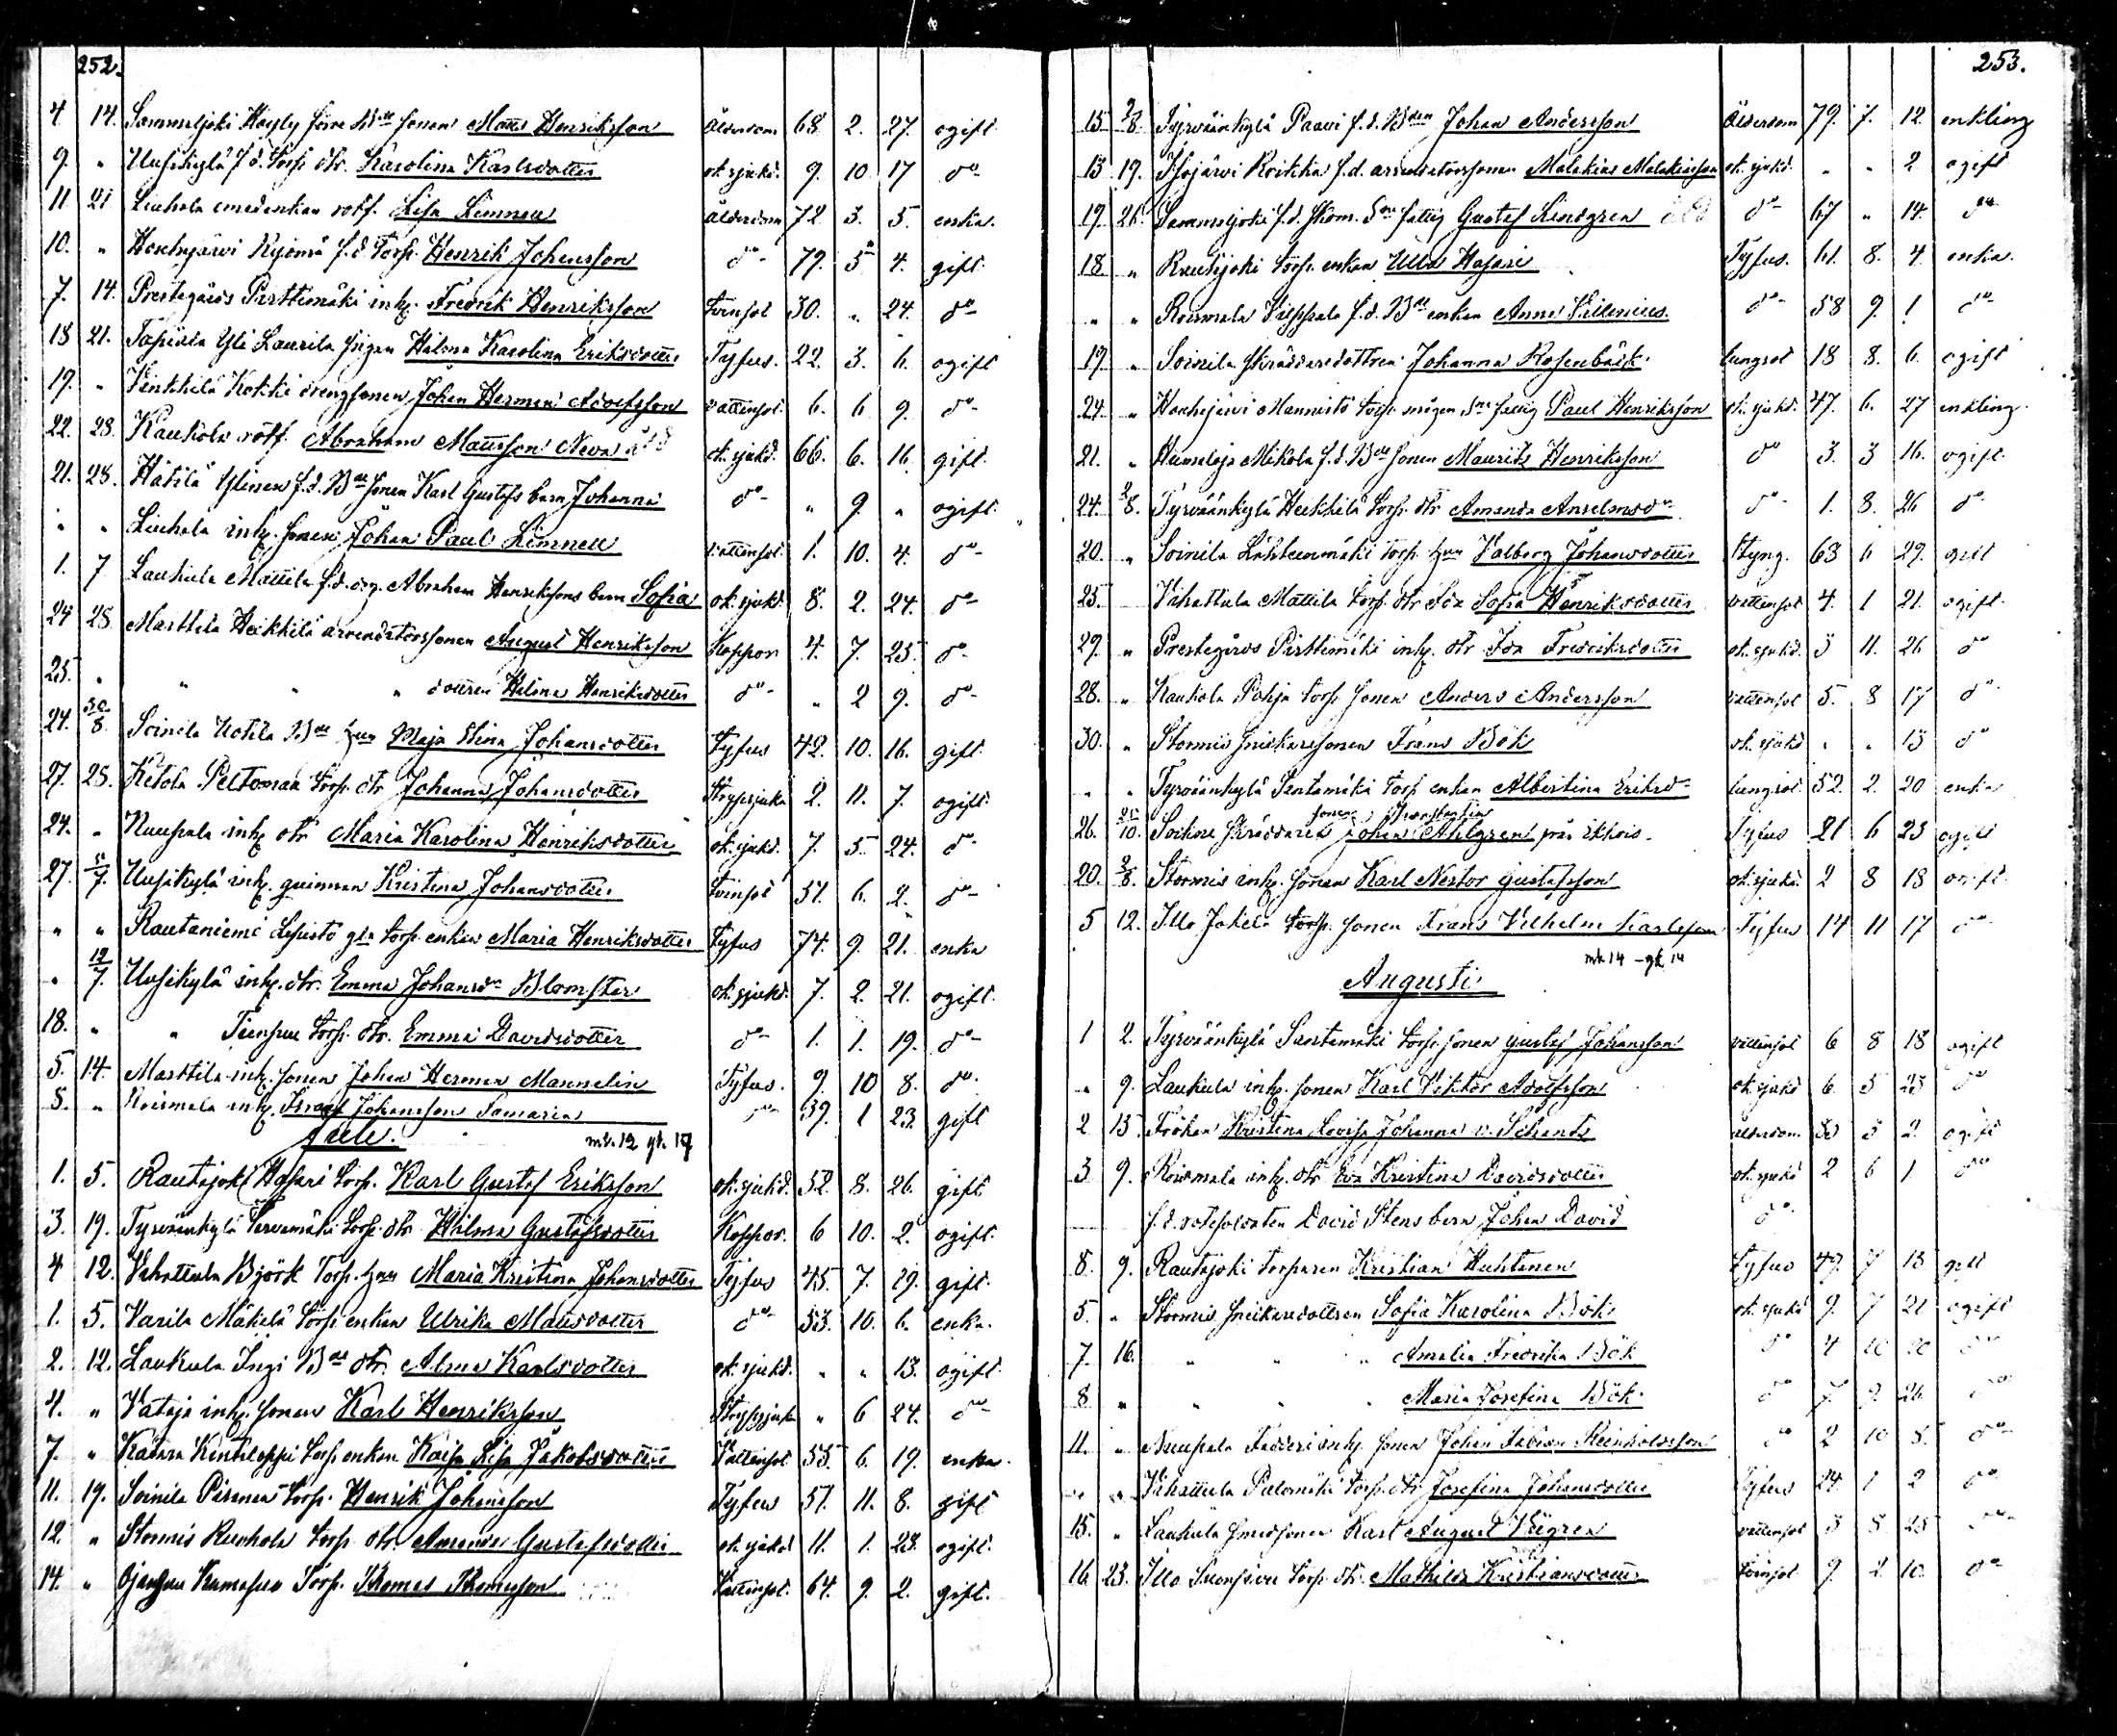 252.
4 14. Sammaljoki Höyly förre Bde sonen Matts Henriksson Ålderdom 68 2. 27. ogift
9. " Uusikylä f.d. torp. dtr. Karolina Karlsdotter ok. sjukd. 9. 10 17 do
11 21 Liuhala smedenkan rotf. Lisa Limnell Ålderdom 72 3. 5. enka.
10. " Houhajärvi f.d. Torp. Henrik Johansson do 79. 5 4. gift.
7. 14. Prestegårds Pirttimäki inh. Fredrik Henriksson tvinsot 30. " 24. do
18 21. Tapiola Yli Laurila pigan Hilma Karolina Eriksdotter Tyfus. 22. 3. 11. ogift
19. " Vinkkilä Kokki drengsonen Johan Herman Adolfsson vattensot. 6. 6 9. do
22. 28. Kaukola rotf. Abraham Mattsson Neva ok. sjukd. 66. 6. 16. gift.
21. 28. Häkilä Ylinen f.d. Bde sonen Karl Gustafs barn Johanna do " 9. " ogift.
" " Liuhala inh. sonen Johan Paul Limnell vattensot. 1. 10. 4. do
1. 7 Laukula Mattila f.d. drg. Abraham Henrikssons barn Sofia ok. sjukd. 8. 2. 24. do
24 28 Marttila Heikkilä arrendatorssonen August Henriksson Koppor 4. 7. 25. do
25. " " " " dottren Hilma Henriksdotter do " 2 9. do
24. 30/8 Soinila Uotila Bde hru Maja Stina Johansdotter Tyfus 42. 10. 16. gift.
27. 25. Ketola Peltomaa torp. dtr Johanna Johansdotter Strypsjuka 2. 11. 7. ogift.
24. " Nuupala inh. dtr Maria Karolina Henriksdotter ok. sjukd. 7. 5. 24. do
27. /7. Uusikylä inh. qvinnan Kristina Johansdotter tvinsot 51. 6. 2. do
" " Rautaniemi Lepistö gla torp. enkan Maria Henriksdotter Tyfus 74. 9. 21. enka
" 12/7. Uusikylä inh. dtr. Emma Johansdr Blomster ok. sjukd. 7. 2. 21. ogift.
18. " " torp. dtr. Emma Davidsdotter do 1. 1. 19. do
5. 14. Marttila inh. sonen Johan Herman Mannelin Tyfus. 9. 10 8. do
8. " Roismala inh. Israel Johansson Samaria do 39. 1 23. gift
Juli. mk. 12 qk. 17
1. 5. Rautajoki Hasari torp. Karl Gustaf Eriksson ok. sjukd. 52. 8. 26. gift
3. 19. Tyrväänkylä torp. dtr Hilma Gustafsdotter Koppor. 6 10. 2. ogift.
4 12. Vihattula Björk Torp. hru Maria Kristina Johansdotter Tyfus 45. 7. 29. gift.
1. 5. Varila Mäkelä torp. enkan Ulrika Mattsdotter do 53. 10. 6. enka.
2. 12. Laukula Ingi Bde dtr. Alma Karlsdotter ok. sjukd. " " 13. ogift.
4. " Vataja inh. sonen Karl Henriksson Strypsjuka " 6 24. do
7. " torp. enkan Kaisa Lisa Jakobsdotter Vattensot 55. 6. 19. enka.
11. 19. Soinila torp. Henrik Johansson Tyfus 51. 11. 8. gift
12. " Stormis torp. dtr. Amanda Gustafsdotter ok. sjukd. 11. 1. 23. ogift.
14. " Torp. Thomas Thomasson Vattensot. 64. 9. 2. gift.
253.
15. 2/8. Tyrväänkylä Paavi f.d. Bden Johan Andersson Ålderdom 79. 7. 12. enkling
13 19. Ihojärvi Koikka f.d. arrendatorssonen Malakias Malakiasson ok. sjukd. " " 2 ogift
19. 26. Sammaljoki f.d. skom. fattig Gustaf Lindgren do 67 " 14. do
18 " Rautajoki torp. enkan Ulla Hasari Tyfus. 61. 8. 4. enka.
" " Roismala f.d. Bde enkan Anna Villenius do 58 9. 1 do
19. " Soinila skräddaredottren Johanna Rosenbäck lungsot 18 8. 6. ogift
24. " Houhajärvi Mannistö torp. mågen fattig Paul Henriksson ok. sjukd. 47. 6. 27 enkling.
21. " Humaloja Mikola f.d. Bde sonen Mauritz Henriksson do 3. 3 16. ogift.
24. 2/8. Tyrväänkylä Heikkilä torp. dtr Amanda Anselmsdr do 1. 8. 26 do
20. " Soinila torp. hru Valborg Johansdotter Styng. 63 6 29. gift
25. Vihattula Mattila torp. dtr Ida Sofia Henriksdotter vattensot 4. 1 21. ogift.
29. " Prestegårds Pirttimäki inh. dtr Ida Fredriksdotter ok. sjukd. 3 11. 26 do
28. " Kaukola Pohja torp. sonen Anders Andersson vattensot 5. 8 17 do
30. " Stormis snickaresonen Frans Bök ok. sjukd " " 13 do
" " Tyrväänkylä Santamäki torp. enkan Albertina Eriksdr lungsot. 52. 2. 20 enka
26. /10. Soikore skräddarek sonen Konstantin Johan Ahlgren från Ikkois. Tyfus 21 6 23 ogift
20. 2/8. Stormis inh. sonen Karl Nestor Gustafsson ok. sjukd. 2 8 18 ogift.
5 12. Illo Jakela torp. sonen Frans Vilhelm Karlsson Tyfus 14 11 17 do
mk 14 - qk 14
Augusti
1 2. Tyrväänkylä Santamäki torp. sonen Gustaf Johansson vattensot 6 8 18 ogift
" 9. Laukula inh. sonen Karl Viktor Adolfsson ok. sjukd 6. 5 23 do
2 13. Fröken Kristina Lovisa Johanna v. Schantz ålderdom. 83 5 2. ogift
3 9. Roismala inh. dtr Eva Kristina Davidsdotter ok. sjukd 2 6 1 do
f.d. rotesoldaten David Stens barn Johan David do
8. 9. Rautajoki torparen Kristian Huhtanen tyfus 49. 7 13 gift
5. " Stormis snickaredottren Sofia Karolina Bök ok. sjukd 9. 7 21 ogift
7. 16. " " " Amalia Fredrika Bök do 4 10 20 do
8 " " " " Maria Josefina Bök do 7. 9. 26 do
11. " Nuupala inh. sonen Johan Fabian Reinholdsson do 2 10 8. do
" " Vihattula torp. dtr Josefina Johansdotter Tyfus 24. 1 2 do
15. " Laukula smedsonen Karl August vattensot 3 8 25 do
16 23. Illo torp. dtr. Mathilda Kristiansdotter tvinsot 9. 2 10. do